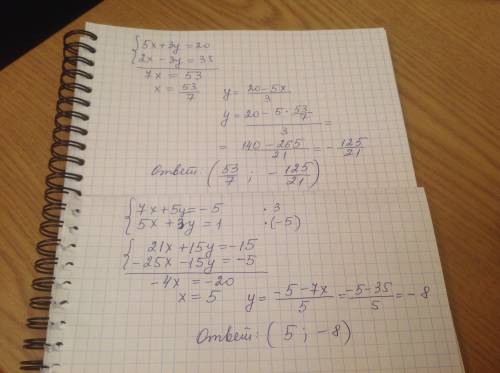 {5x+3y=20
{2x-3y=33
7x = 53
x = 53/7
y = (20-5x)/3
y = (20-5·53/7)/3 =
= (140-265)/21 = -125/21
Ответ: (53/7 ; -125/21)
{7x+5y=-5 ·3
{5x+3y=1 ·(-5)
{21x+15y=-15
{-25x-15y=-5
-4x = -20
x = 5
y = (-5-7x)/5 = (-5-35)/5 = -8
Ответ: (5 ; -8)